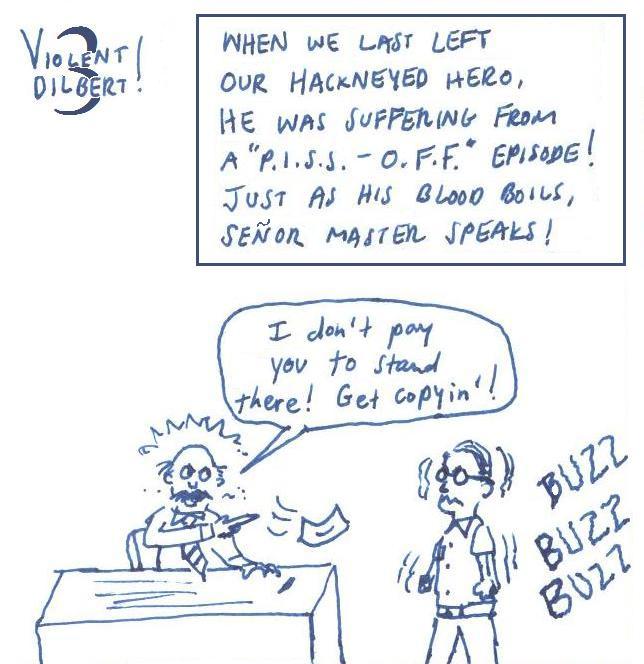 VIOLENT
3
DILBERT!
WHEN WE LAST LEFT
OUR HACKNEYED HERO,
HE WAS SUFFERING FROM
A "P.I.S.S. - O.F.F." EPISODE!
JUST AS HIS BLOOD BOILS,
SEÑOR MASTER SPEAKS!
I don't pay
you to stand
there! Get copyin'!
BUZZ
BUZZ
BUZZ